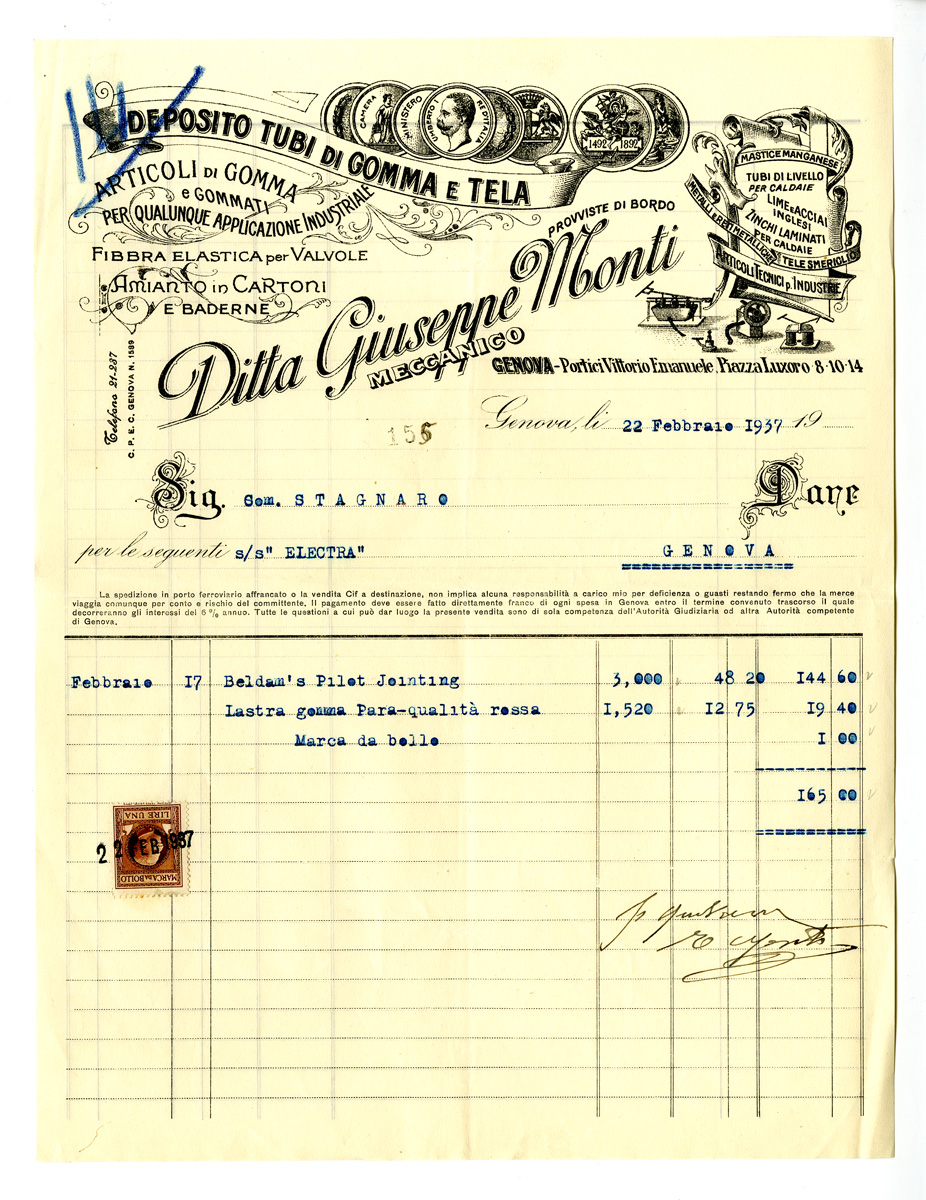 DEPOSITO TUBI DI GOMMA E TELA
CAMERA
MINISTERO
UMBERTO I RE D'ITALIA
1492 1892
ARTICOLI DI GOMMA
E GOMMATI
PER QUALUNQUE APPLICAZIONE INDUSTRIALE
FIBBRA ELASTICA per VALVOLE
AMIANTO in CARTONI
E BADERNE
MASTICE MANGANESE
TUBI DI LIVELLO
PER CALDAIE
LIME E ACCIAI
INGLESI
ZINCHI LAMINATI
PER CALDAIE
METALLI E RETI METALLICHE
TELE SMERIGLIO
ARTICOLI TECNICI p. INDUSTRIE
PROVVISTE DI BORDO
Ditta Giuseppe Monti
MECCANICO
GENOVA - Portici Vittorio Emanuele, Piazza Luxoro 8-10-14
Telefono 21-287
C. P. E. C. GENOVA N. 1589
155
Genova, li 22 Febbraio 1937 19
Sig. Com. STAGNARO Dare
per le seguenti s/s" ELECTRA" GENOVA
La spedizione in porto ferroviario affrancato o la vendita Cif a destinazione, non implica alcuna responsabilità a carico mio per deficienza o guasti restando fermo che la merce
viaggia comunque per conto e rischio del committente. Il pagamento deve essere fatto direttamente franco di ogni spesa in Genova entro il termine convenuto trascorso il quale
decorreranno gli interessi del 6 % annuo. Tutte le questioni a cui può dar luogo la presente vendita sono di sola competenza dell'Autorità Giudiziaria od altra Autorità competente
di Genova.
Febbraio 17 Beldam's Pilot Jointing 3,000 48 20 144 60
Lastra gomma Para-qualità rossa 1,520 12 75 19 40
Marca da bollo 1 00
165 00
LIRE UNA
22 FEB 1937
MARCA DA BOLLO